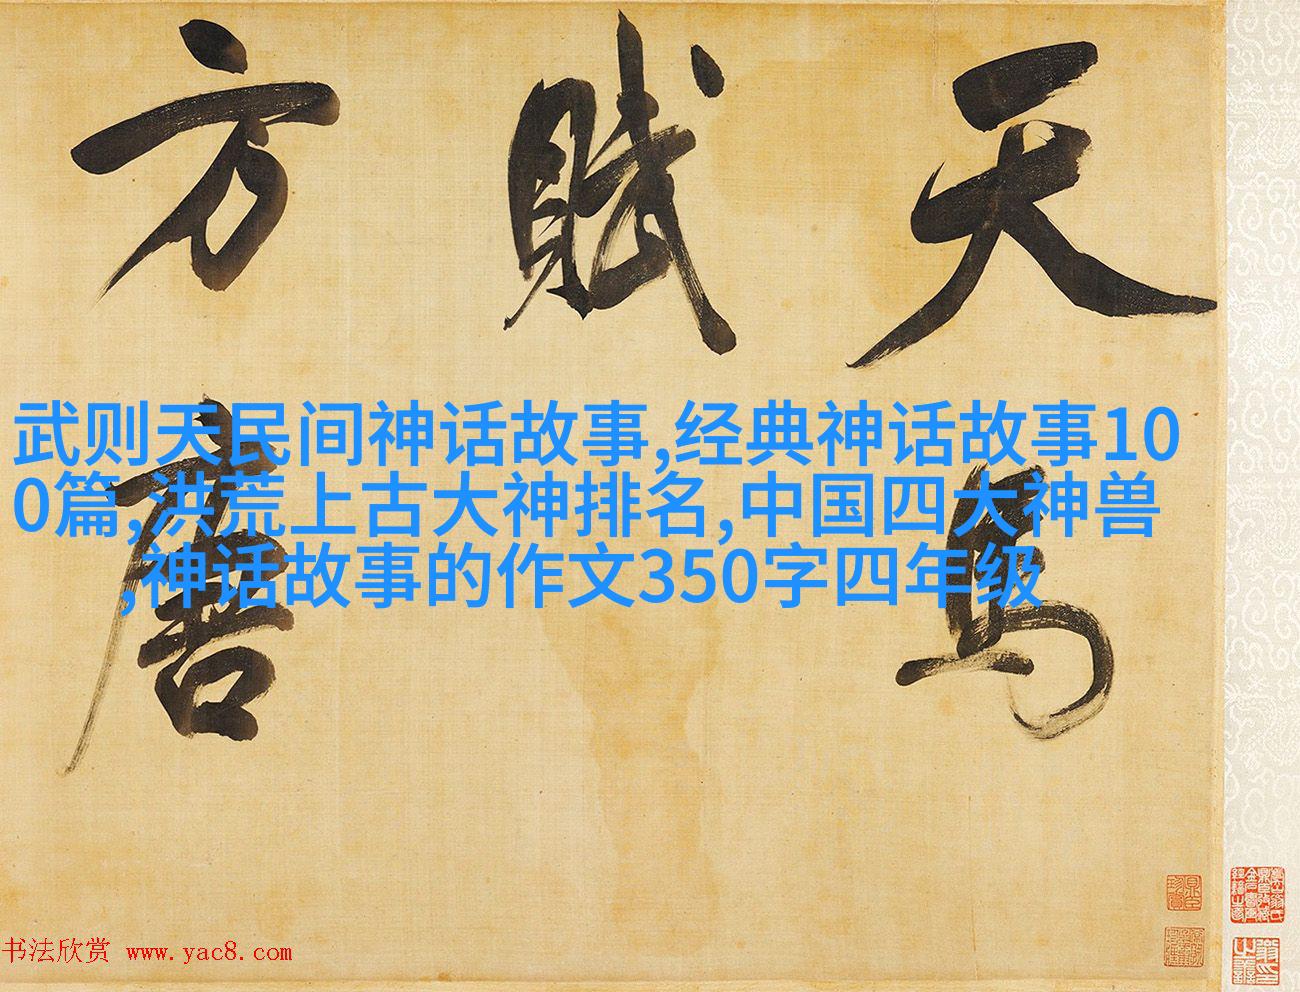 天馬
賦
方唐
武则天民间神话故事,经典神话故事10
0篇,洪荒上古大神排名,中国四大神兽
,神话故事的作文350字四年级
书法欣赏 www.yac8.com